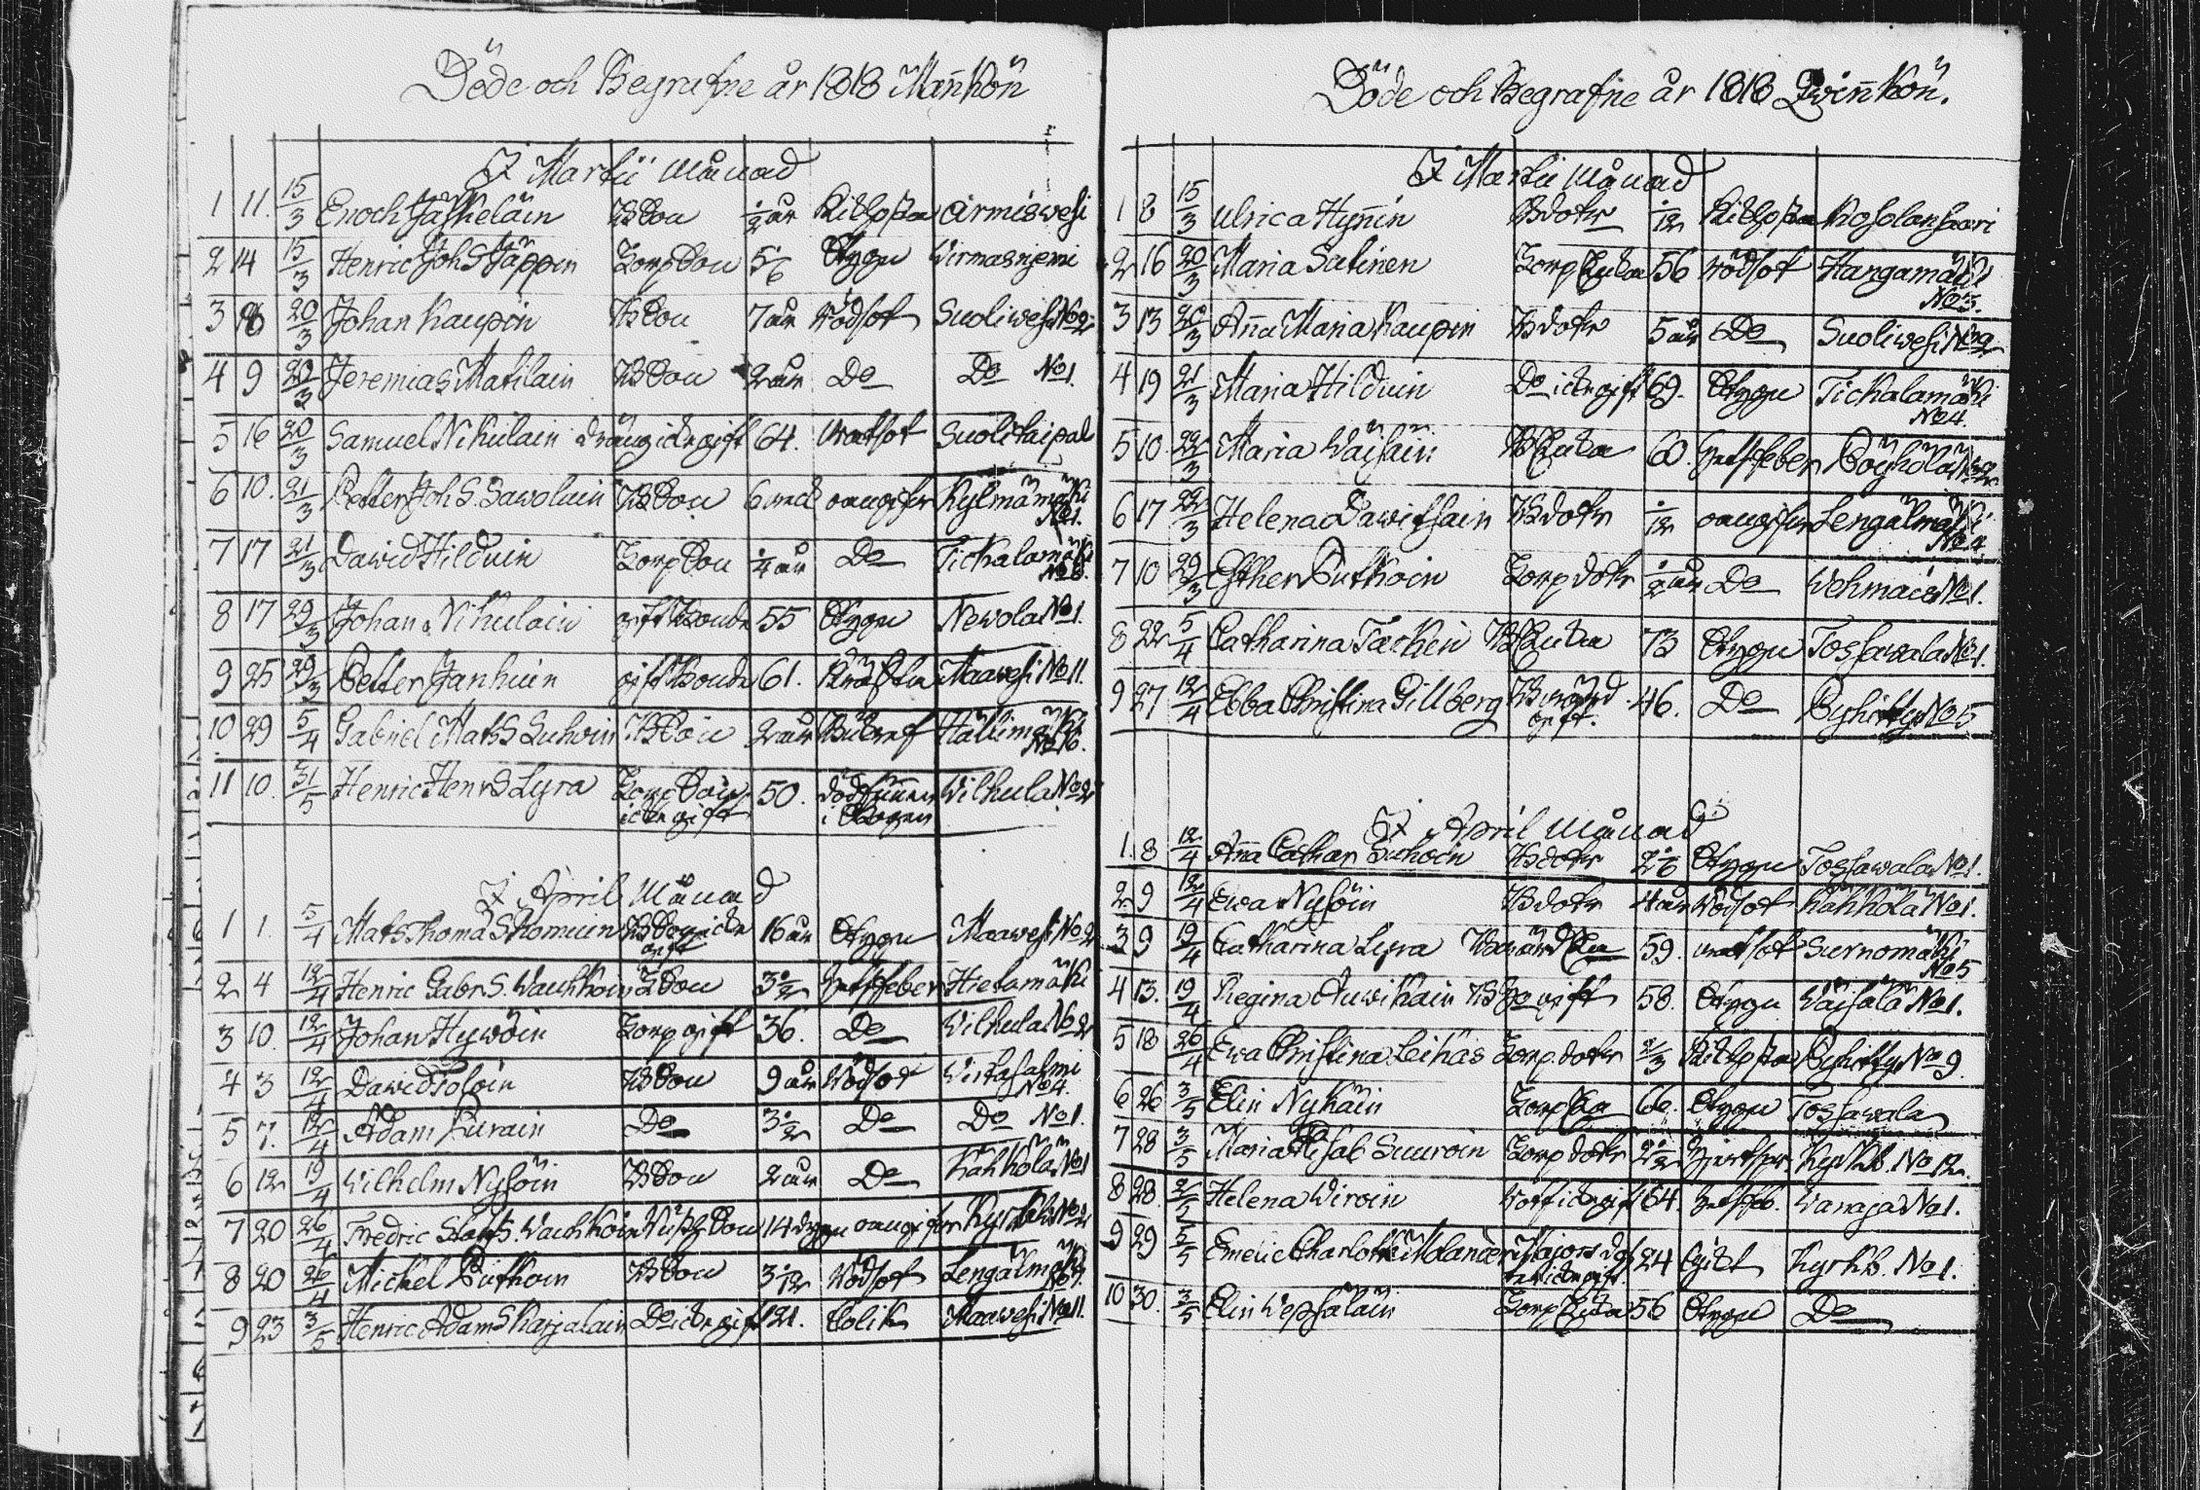 Döde och Begrafne år 1818 Mankön
I Martii Månad
1 11. 15/3 Enoch Jäskeläin BSon ½ år Kikhosta Airmiswesi
2 14 15/3 Henric JohS Jäppin Torp Son 5/6 Styng Wirmasniemi
3 18 20/3 Johan Kaupin BSon 7 år Rödsot Suoliwesi No 2
4 9 20/3 Jeremias Matilain BSon 2 år Do Do No 1.
5 16 20/3 Samuel Nikulain dräng ickegift 64. Suolitaipal
6 10. 21/3 Petter Joh S. Sawolain BSon 6 Kylmämäki No 1.
7 17 21/3 David Hilduin Torp Son ¼ år Do Tickalamäki
8 17 29/3 Johan Nikulain gift Bonde 55 Styng Newola No 1.
9 25 29/3 Petter Janhuin gift Bonde 61. Maawesi No 11.
10 29 5/4 Gabriel MatsS Luhoin BSon 2 år Hällimäki No 16.
11 10. 31/5 Henric HenrS Lyra Torp Son icke gift 50. död funnen i skogen Wilhula No 2
I April Månad
1 1. 5/4 Mats ThomaS Komuin BSon icke gift 16 år Styng Maawesi No 2
2 4 12/4 Henric Gabr S. Wauhkoin BSon 3½ Hietamäki
3 10. 12/4 Johan Hywöin Torp gift 36. Do Wilhula No 2
4 3 12/4 David Toloin BSon 9 år Rödsot Wirtasalmi No 4.
5 7. 12/4 Adam Purain Do 3½ Do Do No 1.
6 12 19/4 Wilhelm Nysöin BSon 2 år Do Kähkölä No 1
7 20 26/4 Fredric StaffS. Wauhkoin Son 14 dagar Kyrkb. No 2
8 20 26/4 Michel Putkoin BSon 3/12 Rödsot Längälmäki
9 23 3/5 Henric AdamS Karjalain Do icke gift 21. Colik Maawesi No 11.
Döde och Begrafne år 1818 Qwinkön.
I Martii Månad
1 8 15/3 Ulrica Hynnin Bdotr /12 Kikhosta Kosolansaari
2 16 20/3 Maria Satinen Torp Enka 56 Rödsot Hangamäki No 3.
3 13 20/3 Anna Maria Kaupin Bdotr 5 år Do Suoliwesi No 2
4 19 21/3 Maria Hilduin Do icke gift 69. Styng Tickalamäki No 4.
5 10. 22/3 Maria Wäisäin BEnka 60. Pöyhölä No 2
6 17 22/3 Helena Dawitsain Bdotr /12 Längälmäki No 4
7 10 29/3 Esther Putkoin Torp dotr ½ år Do Wehmais No 1.
8 22 5/4 Catharina Tarkein BEnka 73 Styng Tossawala No 1.
9 27 12/4 Ebba Christina Gillberg gift. 46. Do Pyhitty No 5
I April Månad
1. 8 12/4 Anna Cathar Luhoin Bdotr Styng Tossawala No 1.
2 9 12/4 Ewa Nysöin Bdotr 4 år Rödsot Kähkölä No 1.
3 9 19/4 Catharina Lyra 59. Surnomäki No 5
4 13. 19/4 Regina Auwikain gift 58. Styng Wäisälä No 1.
5 18 26/4 Ewa Christina Leihäs Torp dotr 2/3 Kikhosta Pyhitty No 9.
6 26 3/5 Elin Nykäin Torp 66. Styng Tossawala
7 28 3/5 Maria Elisab Suuroin Torp dotr 2½ Kyrkb. No 12
8 28. Helena Wiroin icke gift 64. Wanaja No 1.
9 29 3/5 Emelie Charlotta Molander Majors dotr icke gift. 24 Gickt Kyrkb. No 1.
10 30. 3/5 Elin Wepsäläin Torp Enka 56 Styng Do